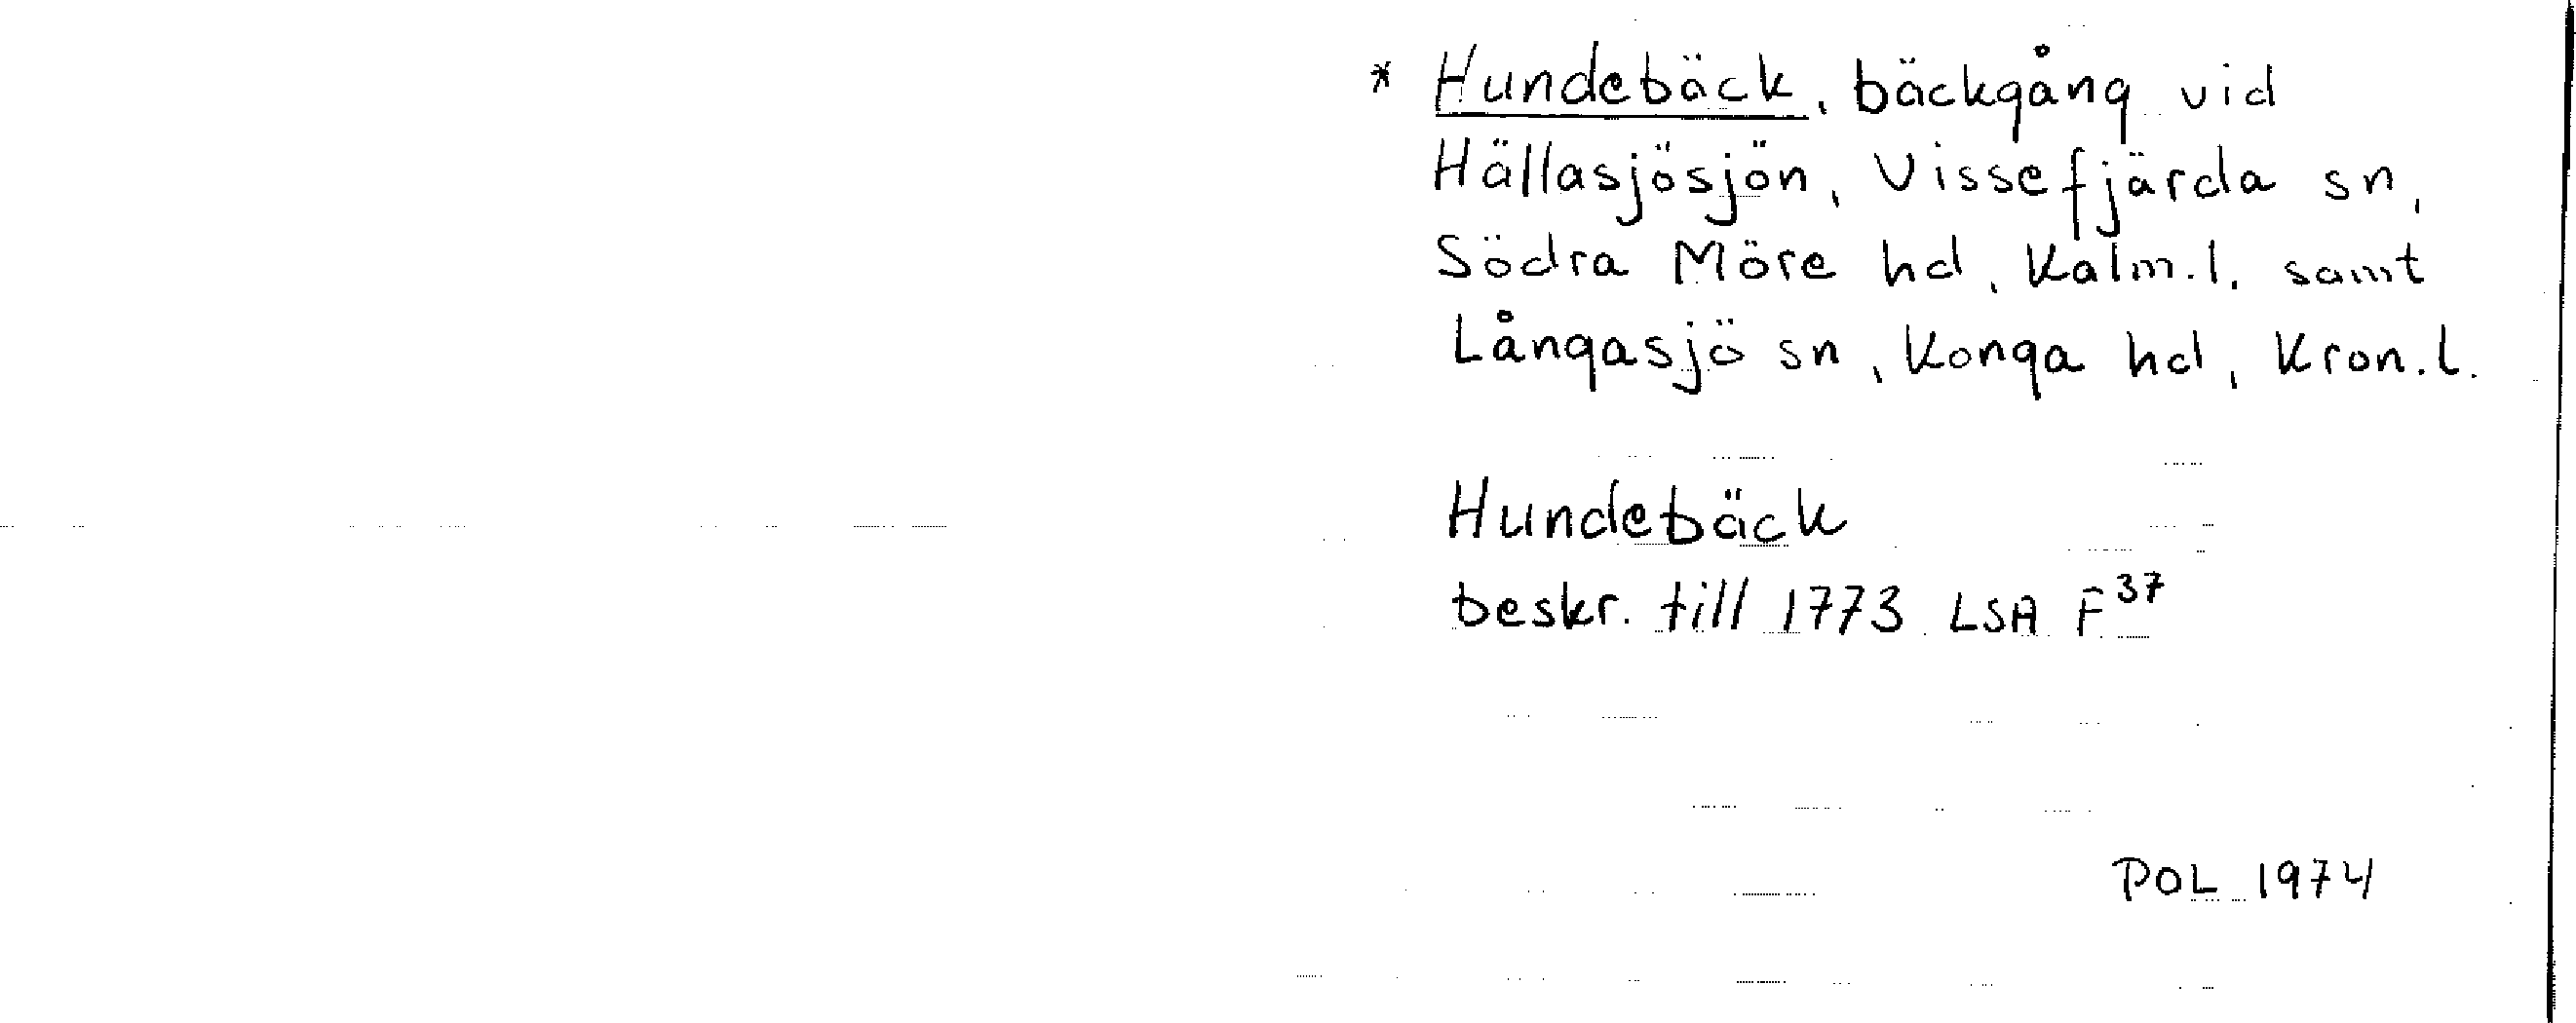 * Hundebäck, bäckgång vid
Hällasjösjön, Vissefjärda sn,
Södra Möre hd, Kalm.l. samt
Långasjö sn, Konga hd, Kron.l.
Hundebäck
beskr. till 1773 LSA F³⁷
POL 1974